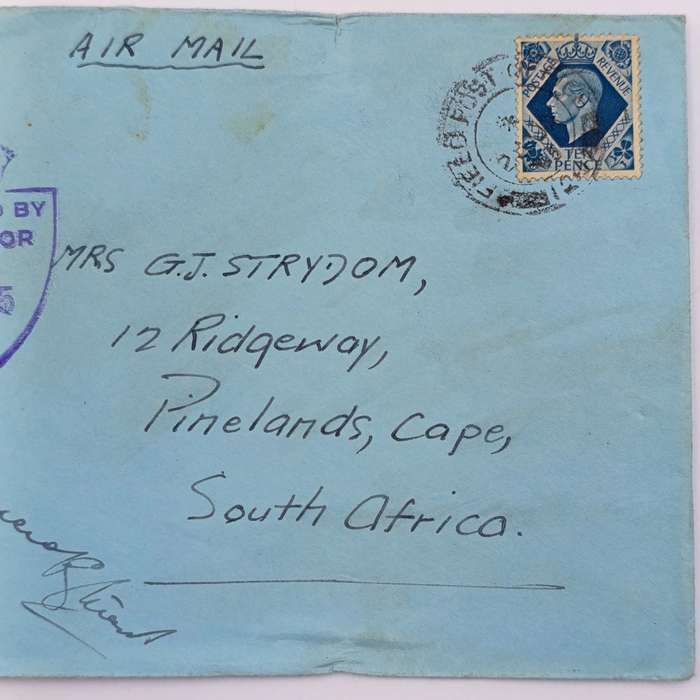 AIR MAIL
FIELD POST
POSTAGE REVENUE
TEN
PENCE
BY
OR
5
MRS G.J. STRYDOM,
12 Ridgeway,
Pinelands, Cape,
South Africa.